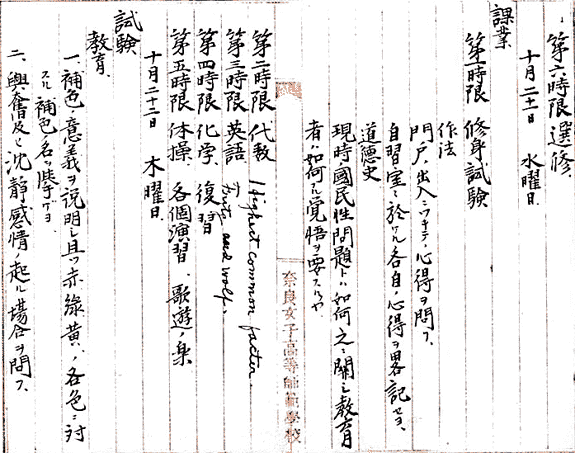 第六時限 選修、
十月二十一日 水曜日、
課業
第一時限 修身試験
作法
門戸ノ出入ニツキテノ心得ヲ問フ、
自習室ニ於ケル各自ノ心得ヲ畧記セヨ、
道徳史
現時ノ国民性問題トハ如何之ニ関シ教育
者ハ如何ナル覚悟ヲ要スルヤ
奈良女子高等師範學校
第二時限 代数 Highest common factor
第三時限 英語 and wolf.
第四時限 化学、復習
第五時限 体操、各個演習、歌遊ノ樂
十月二十二日 木曜日、
試験
教育、
一、補色ノ意義ヲ説明シ且ツ赤緑黄ノ各色ニ対
スル補色名ヲ挙ケヨ
二、興奮及ヒ沈静感情ノ起ル場合ヲ問フ、